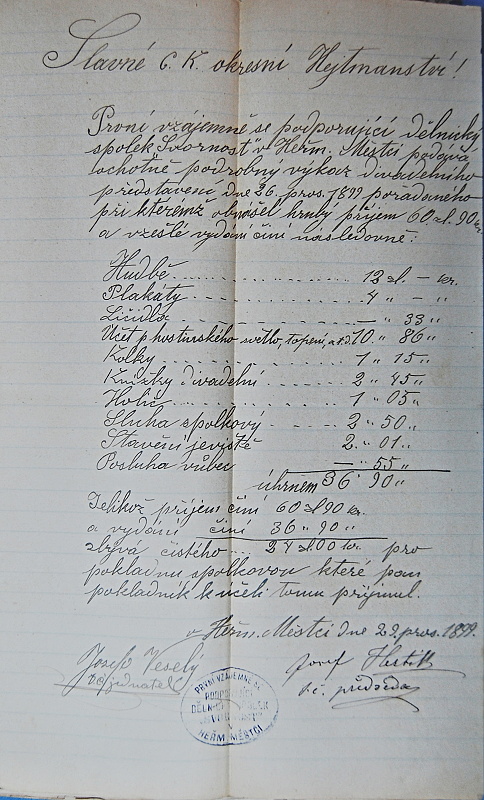 Slavné C. K. okresní Hejtmanství!
První vzájemně se podporující dělnický
spolek Svornost v Heřm. Městci podává
ochotně podrobný výkaz divadelního
představení dne 26. pros. 1899 pořádaného
při kterémž obnášel hrubý příjem 60 zl. 90 kr.
a vzešlé vydání činí následovně:
Hudbě 12 zl. — kr.
Plakáty 4 " — "
Líčidla — " 33 "
Účet p hostinského světlo, topení, a t.d. 10 " 86 "
Kolky 1 " 15 "
Knížky divadelní 2 " 45 "
Holič 1 " 05 "
Sluha spolkový 2 " 50 "
Stavění jeviště 2 " 01 "
Posluha vůbec — " 55 "
úhrnem 36 " 90 "
Jelikož příjem činí 60 zl 90 kr.
a vydání činí 36 " 90 "
zbývá čistého 24 zl 00 kr. pro
pokladnu spolkovou které pan
pokladník k účeli tomu přijmul.
v Heřm. Městci dne 29. pros. 1899.
Josef Veselý
jednatel
Josef
t. č. předseda
PRVNÍ VZÁJEMNĚ SE
PODPORUJÍCÍ
DĚLNICKÝ SPOLEK
HEŘM. MĚSTCI